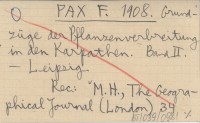 PAX F. 1908. Grund-
züge der Pflanzenverbreitung
in den Karpathen. Band II.
— Leipzig
Rec: "M.H., The Geogra-
phical Journal (London) 34